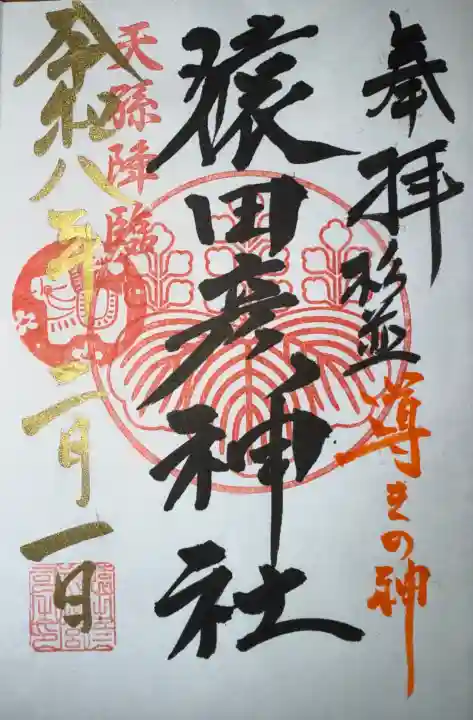 奉拝 杉並 導きの神
猿田彦神社
天孫降臨
令和八年二月一日